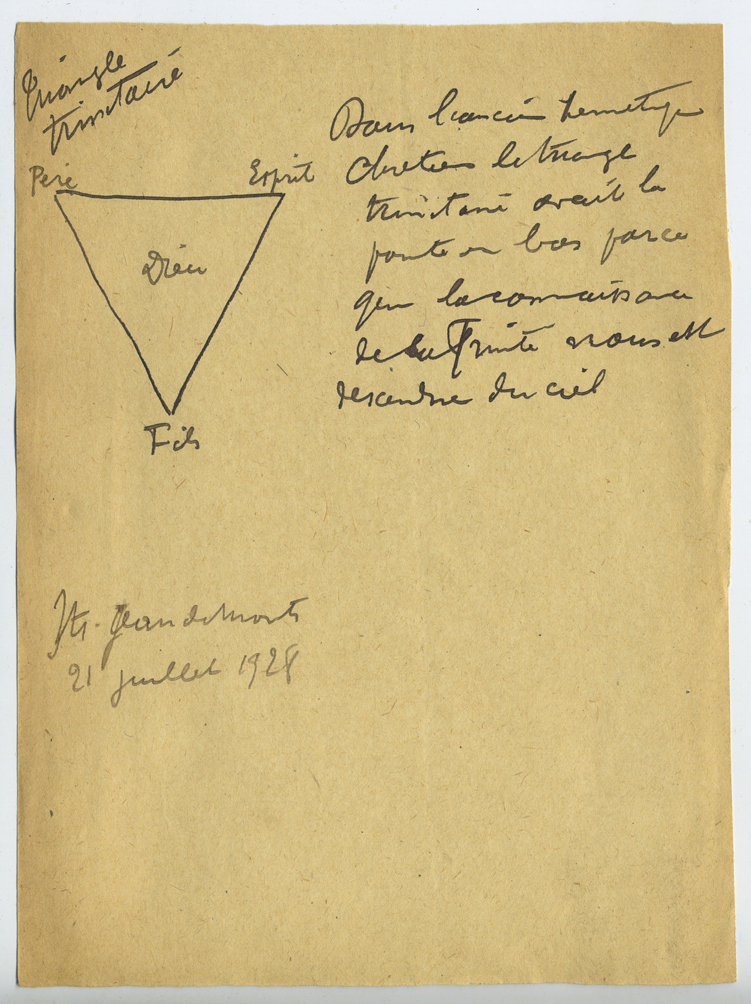 Triangle
trinitaire
Père
Esprit
Dieu
Fils
Dans l'ancien hermétique
Chretien le triangle
trinitaire avait la
pointe en bas parce
que la connaissance
de la Trinité nous est
descendue du ciel
St. Jean de Monts
21 juillet 1928